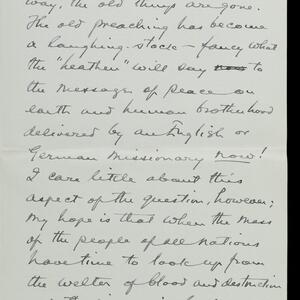 way, the old things are gone.
The old preaching has become
a laughing-stock – fancy what
the "heathen" will say to
the messages of peace on
earth and human brotherhood
delivered by an English or
German missionary now!
I care little about this
aspect of the question, however;
my hope is that when the mass
of the people of all nations
have time to look up from
the welter of blood and destruction